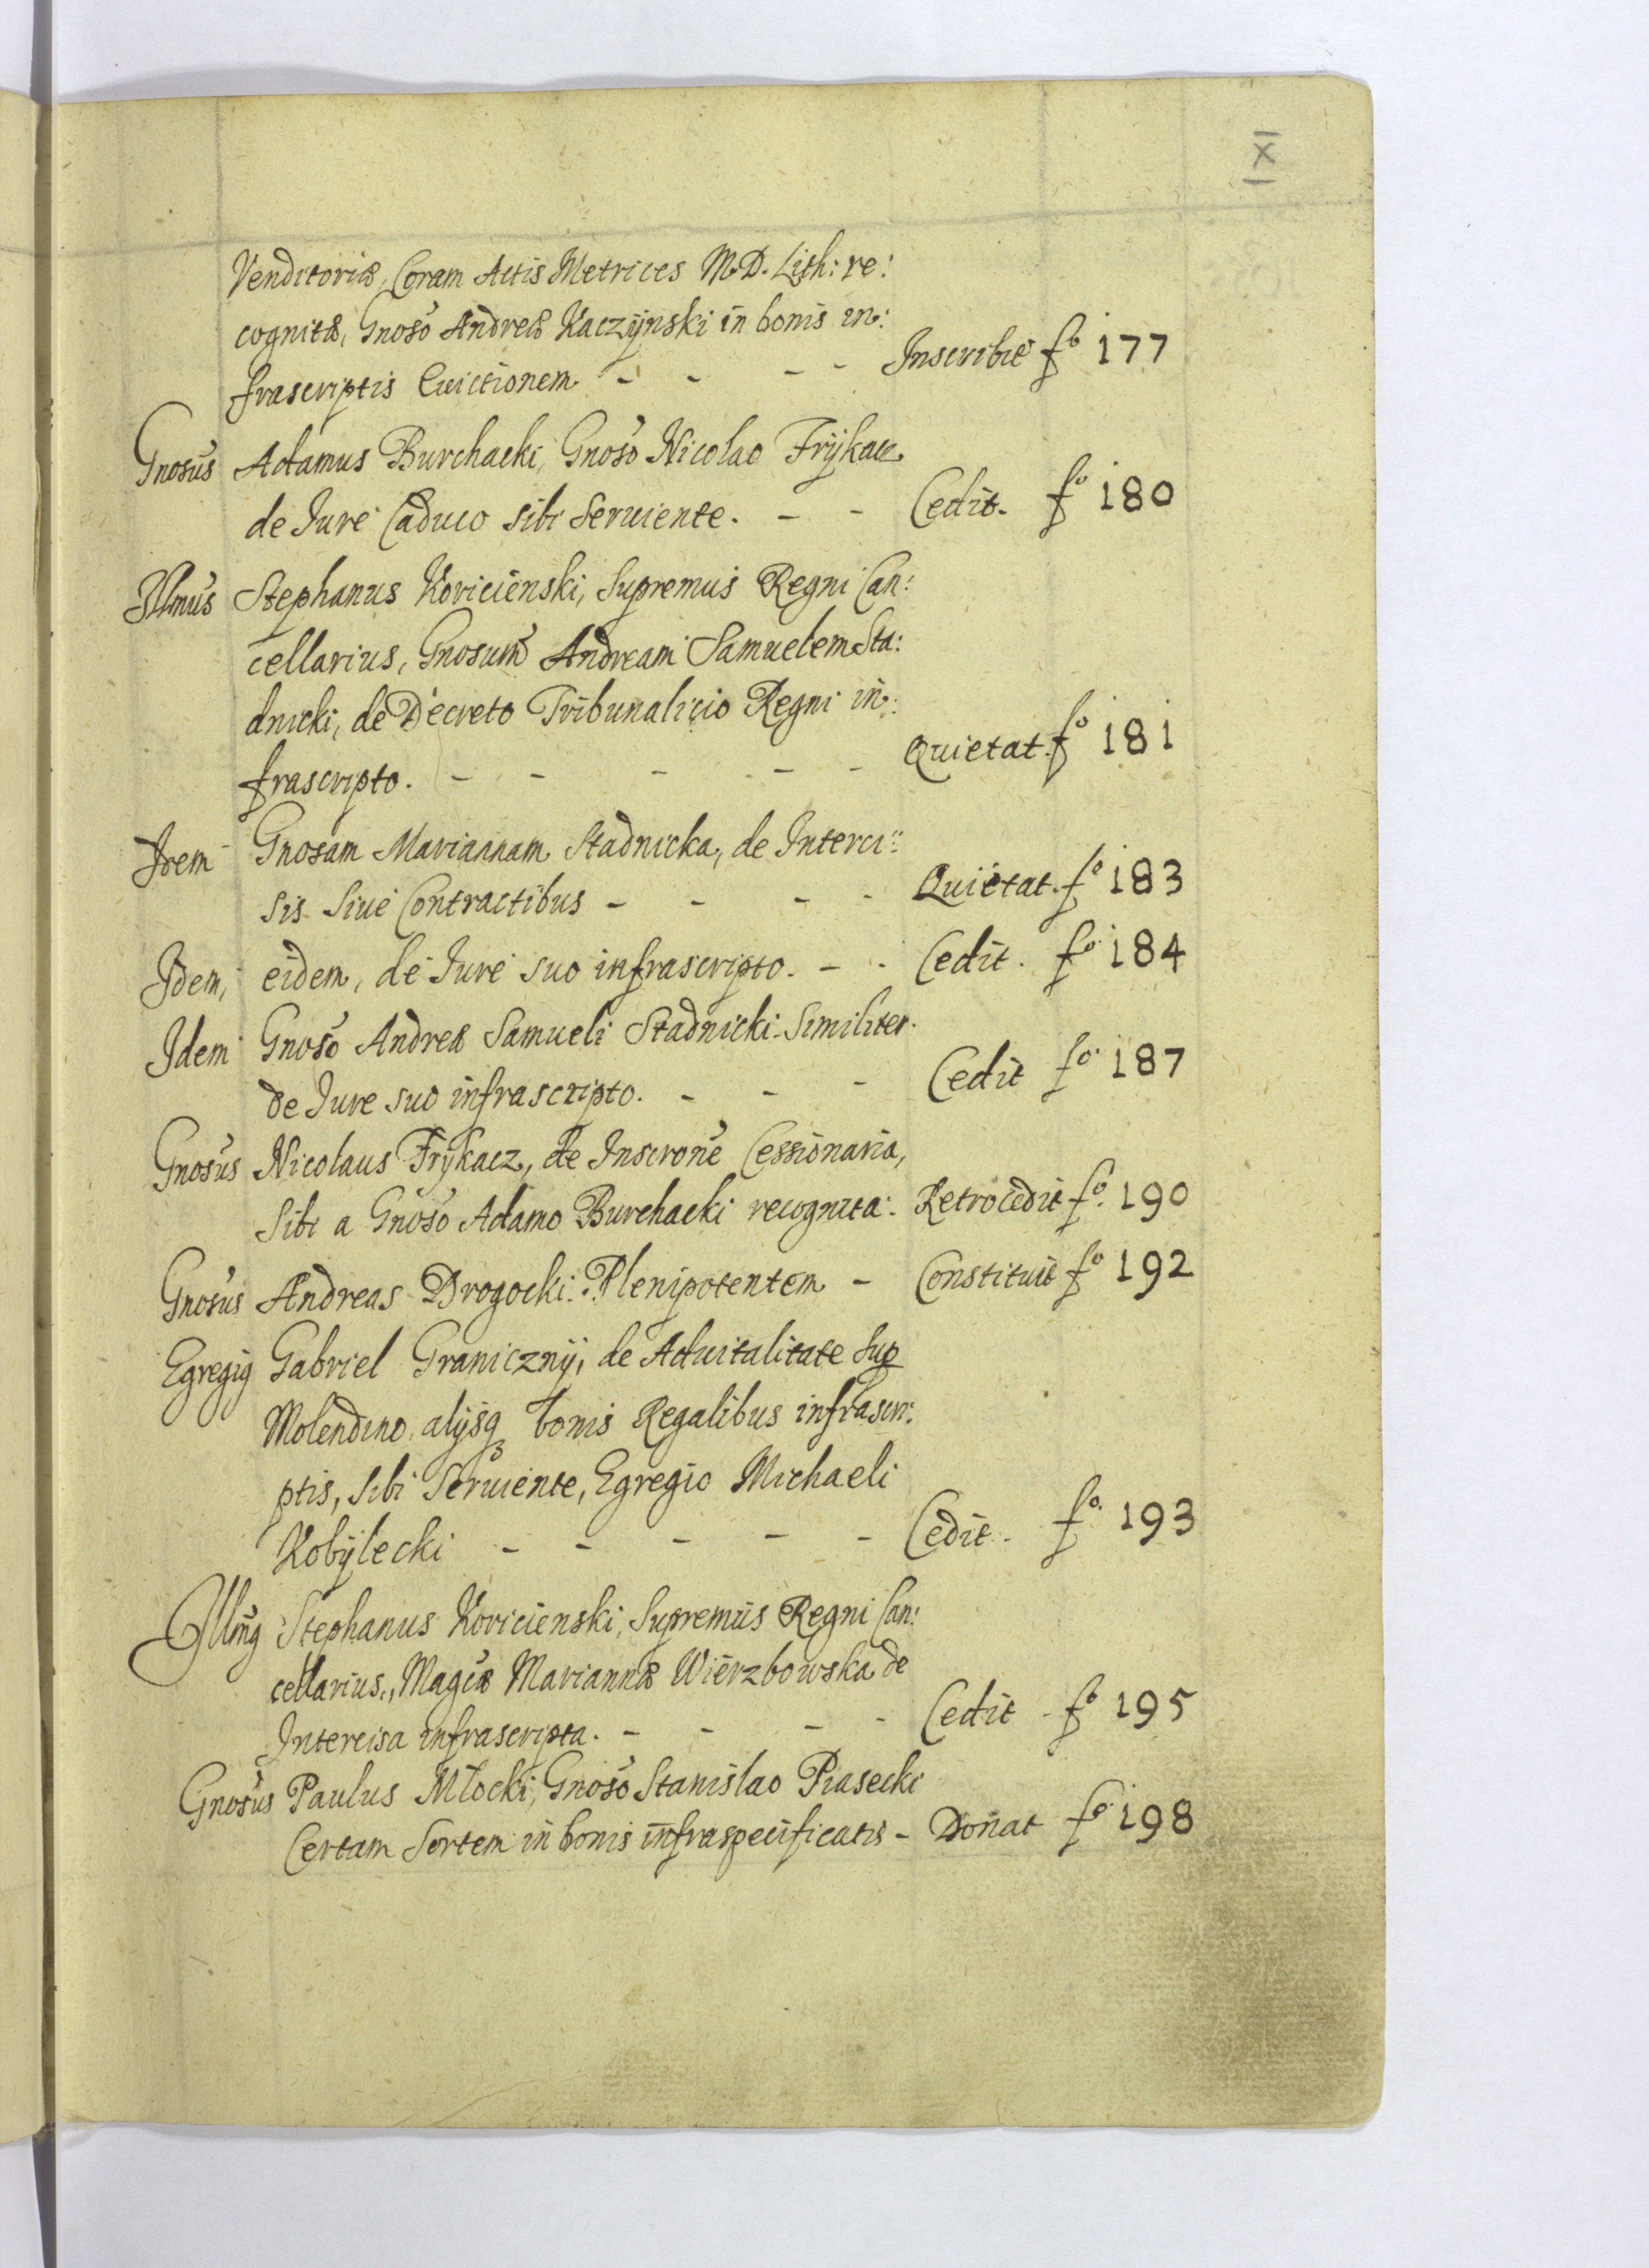 XI
Venditoriæ, Coram Actis Metrices M.D. Lith: re:
cognitæ, Gnoso Andreæ Kaczÿnski in bonis in:
frascriptis Evictionem - - - - Inscribit fo 177
Gnosus Adamus Burchacki, Gnoso Nicolao Frÿkacz
de Jure Caduco sibi Serviente. - - Cedit. fo 180
Illmus Stephanus Koricienski, Supremus Regni Can:
cellarius, Gnosum Andream Samuelem Sta:
dnicki, de Decreto Tribunalicio Regni in:
frascripto. - - - - - Quietat. fo 181
Idem Gnosam Mariannam Stadnicka, de Interci:
sis Siue Contractibus - - - - Quietat. fo 183
Idem, eidem, de Jure suo infrascripto. - - Cedit. fo 184
Idem Gnoso Andreæ Samueli Stadnicki Similiter
de Jure suo infrascripto. - - - Cedit fo 187
Gnosus Nicolaus Frÿkacz, de Inscrone Cessionaria,
Sibi a Gnoso Adamo Burchacki recognita: Retrocedit fo 190
Gnosus Andreas Drogocki. Plenipotentem - Constituit fo 192
Egregig Gabriel Granicznÿ, de Aduitalitate Sup
Molendino, alÿsq bonis Regalibus infrascri:
ptis, sibi Seruiente, Egregio Michaeli
Kobÿlecki - - - - - Cedit. fo 193
Illmg Stephanus Koricienski, Supremus Regni Can:
cellarius, Magcæ Mariannæ Wierzbowska de
Intercisa infrascripta. - - - - Cedit - fo 195
Gnosus Paulus Młocki, Gnoso Stanislao Piasecki
Certam Sortem in bonis infraspecificatis - Donat fo 198